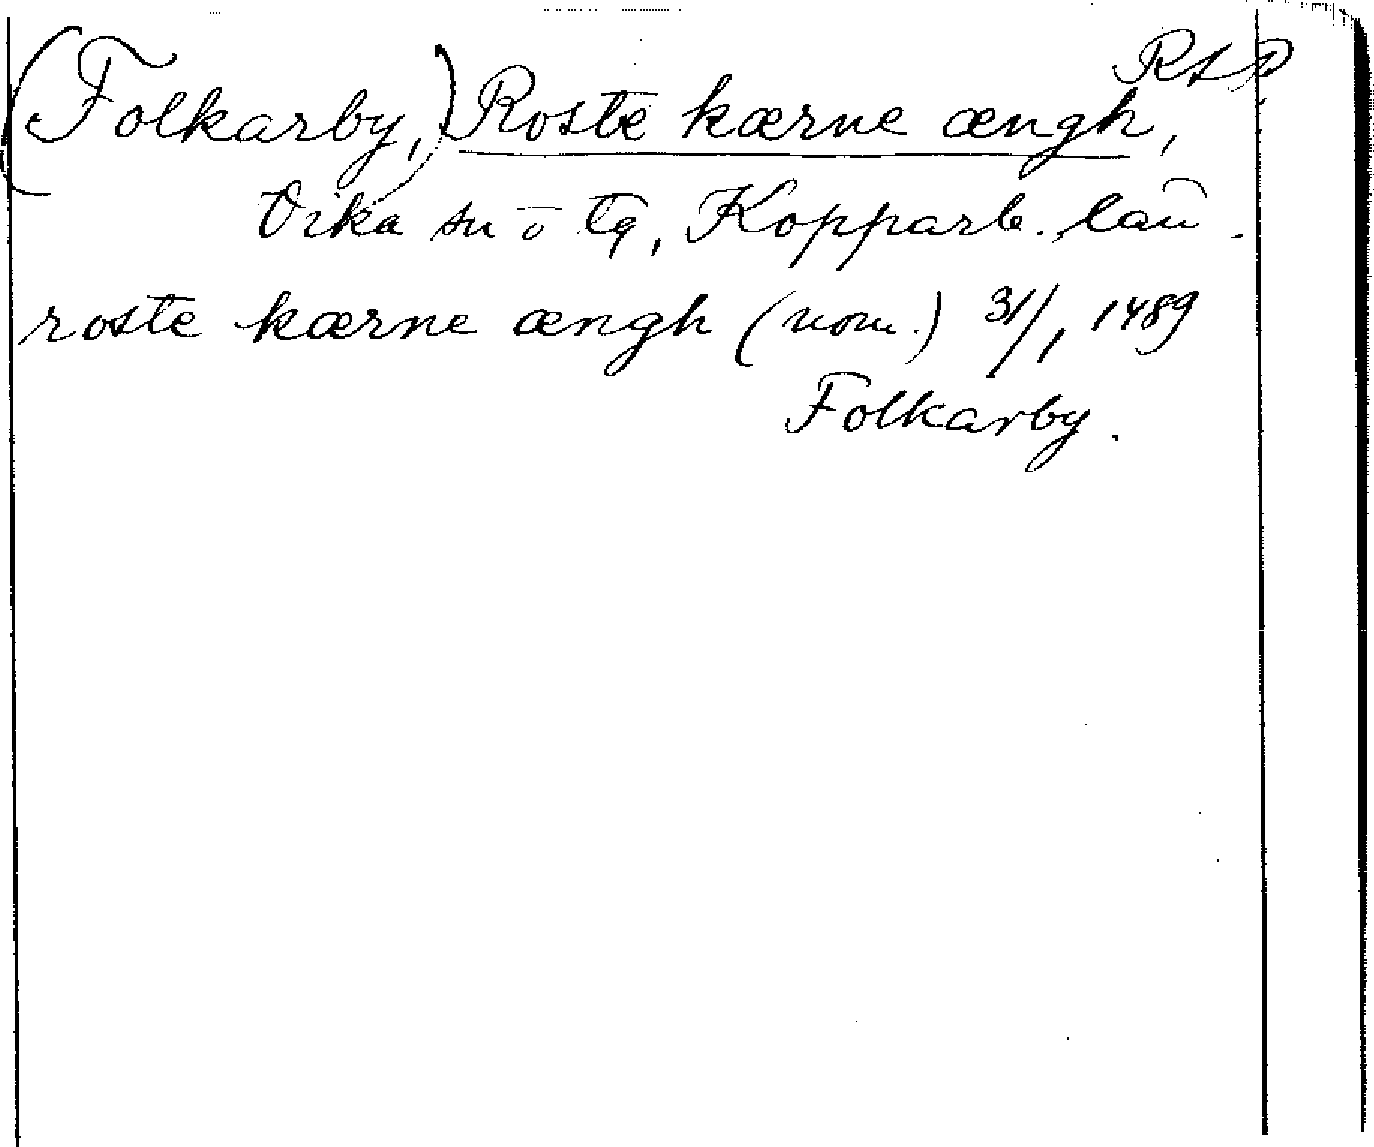 RAP
(Folkarby,) Roste kærne ængh,
Vika sn o tg, Kopparb. län.
roste kærne ængh (nom.) 31/1 1489
Folkarby.